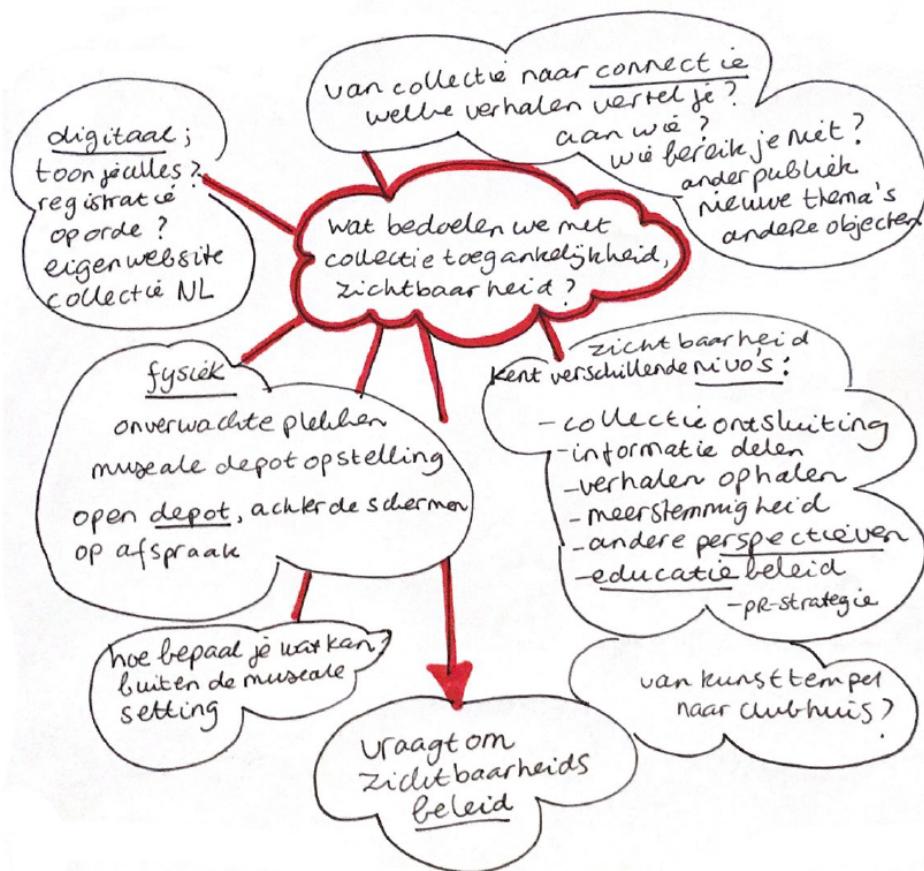 van collectie naar connectie
welke verhalen vertel je?
aan wie?
wie bereik je niet?
ander publiek
nieuwe thema's
andere objecten
digitaal;
toon je alles?
registratie
op orde?
eigen website
collectie NL
wat bedoelen we met
collectie toegankelijkheid,
zichtbaarheid?
fysiek
onverwachte plekken
museale depot opstelling
open depot, achter de schermen
op afspraak
zichtbaarheid
kent verschillende nivo's:
- collectie ontsluiting
- informatie delen
- verhalen ophalen
- meerstemmigheid
- andere perspectieven
- educatie beleid
- PR-strategie
hoe bepaal je wat kan?
buiten de museale
setting
van kunsttempel
naar clubhuis?
vraagt om
zichtbaarheids
beleid